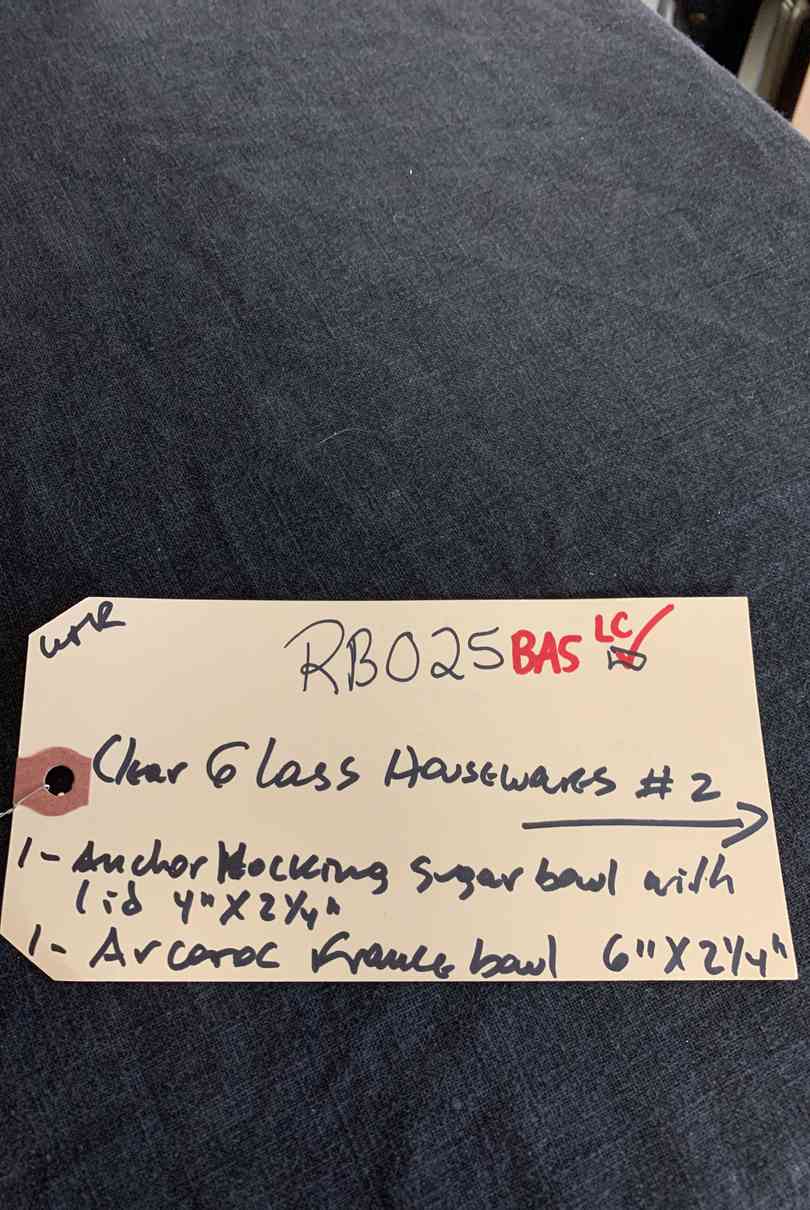 RB025 BAS LC
Clear Glass Housewares #2
1- Anchor Hocking Sugar bowl with
lid 4" X 2¼"
1- Arcoroc France bowl 6" X 2¼"